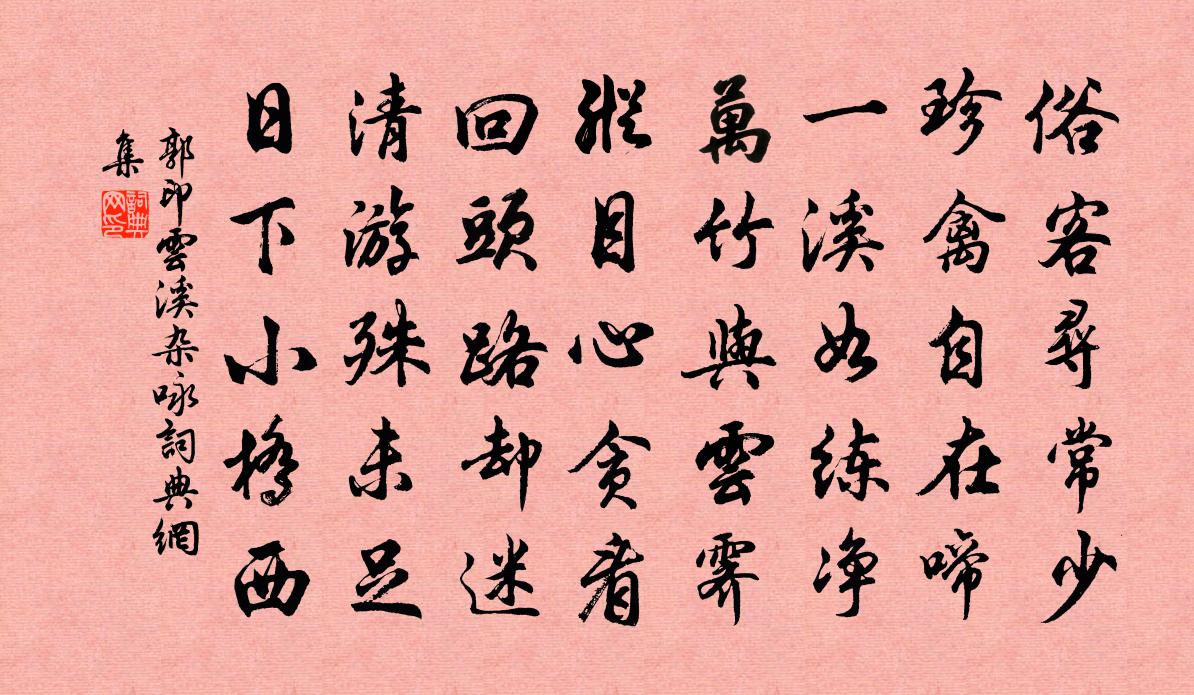 俗客尋常少
珍禽自在啼
一溪如練净
萬竹與雲霽
縱目心貪看
回頭路却迷
清游殊未足
日下小橋西
郭印雲溪杂咏詞典網
集
詞典网印